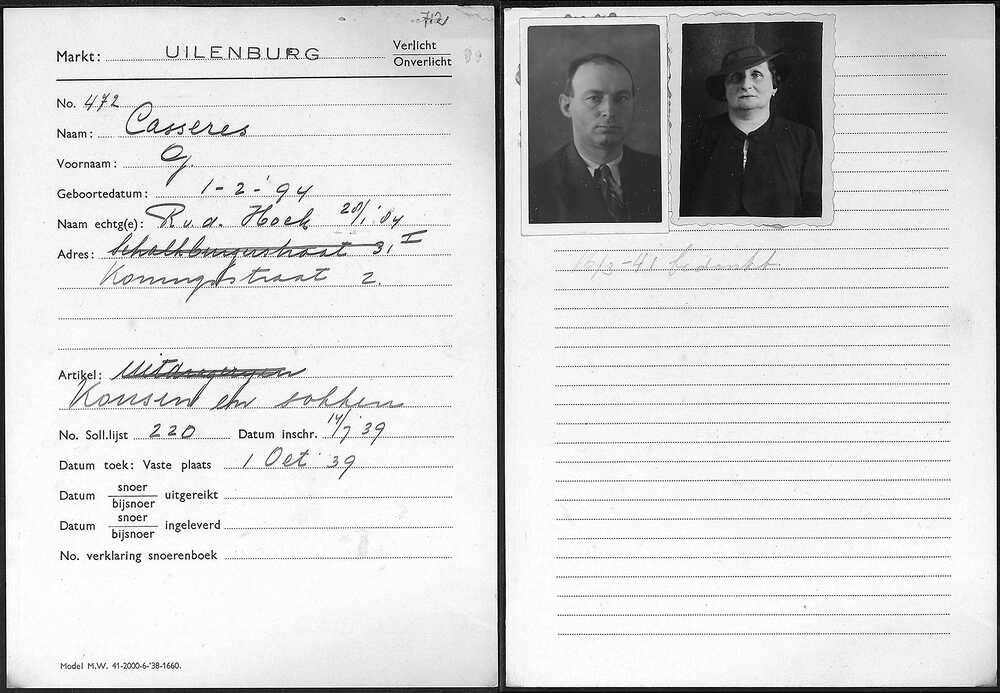 Markt: UILENBURG Verlicht
Onverlicht
No. 472
Naam: Casseres
Voornaam: G.
Geboortedatum: 1-2-'94
Naam echtg(e): R.v.d. Hoek 28/1 '84
Adres: Schalkburgerstraat 31 I
Koningstraat 2.
Artikel:
Kousen en sokken
No. Soll.lijst 220 Datum inschr. 14/7 39
Datum toek: Vaste plaats 1 Oct '39
Datum snoer
bijsnoer uitgereikt
Datum snoer
bijsnoer ingeleverd
No. verklaring snoerenboek
Model M.W. 41-2000-6-'38-1660.
-41 bedankt.